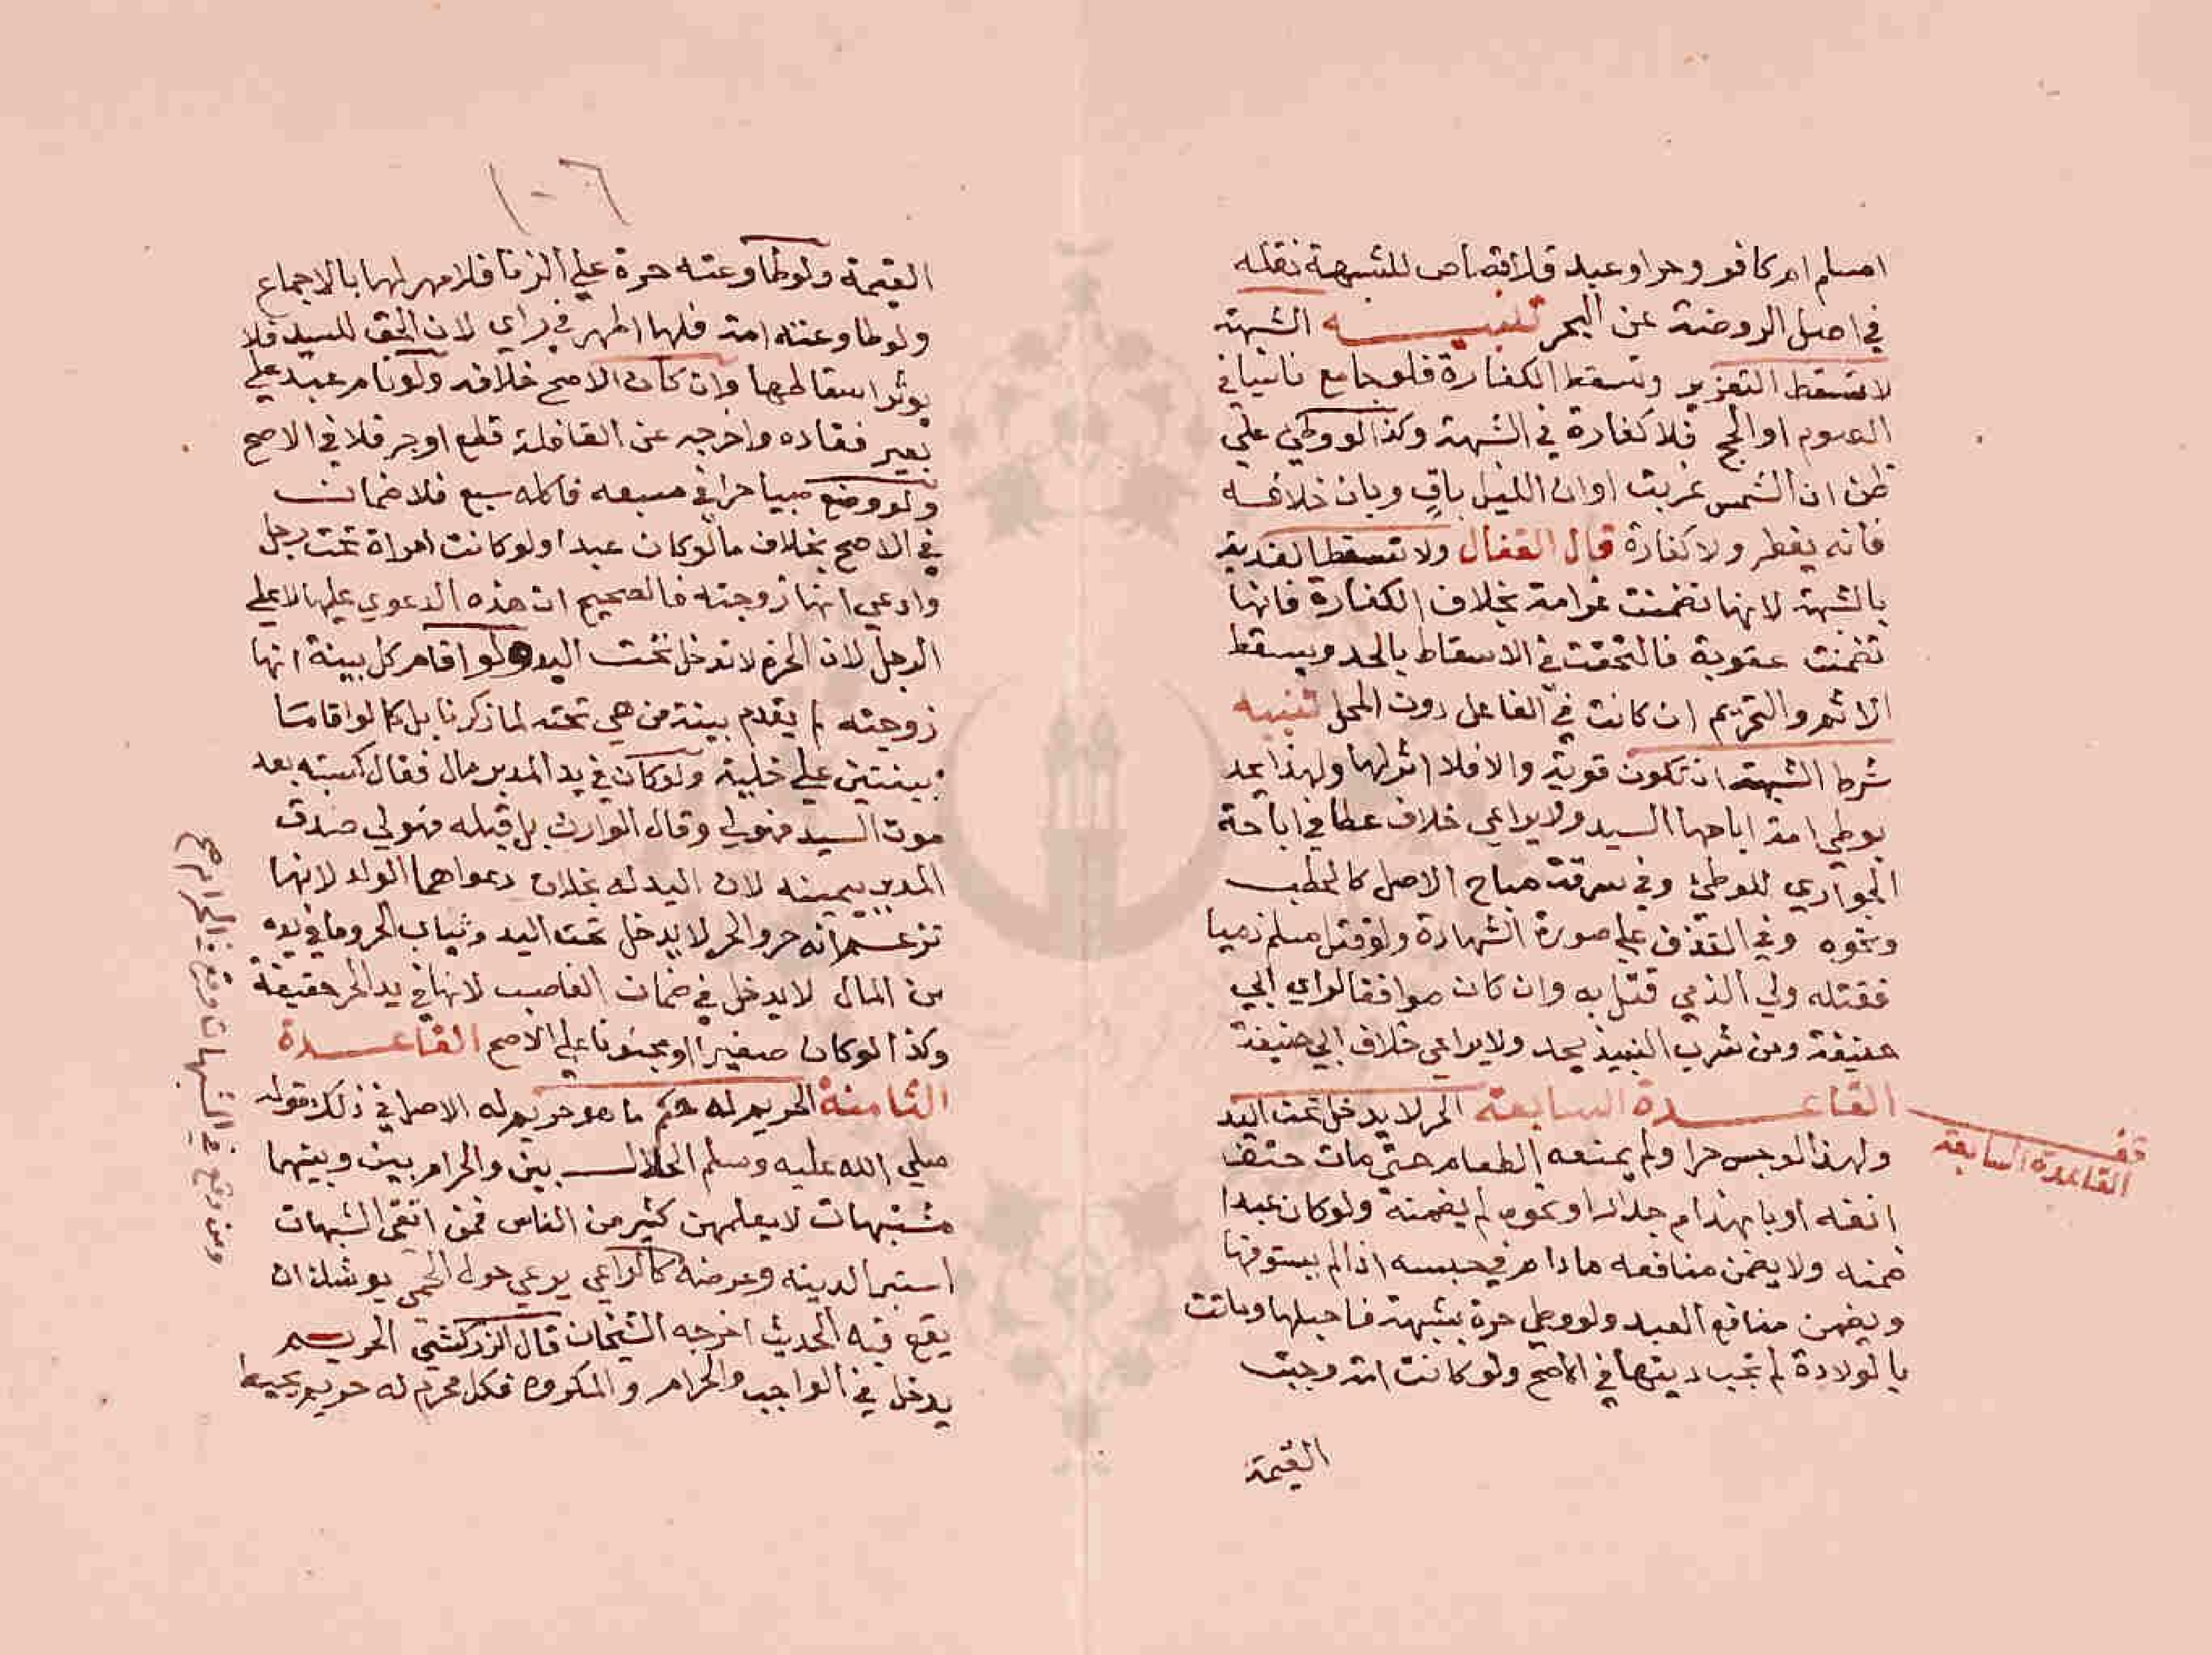 امسلم ام كافر وحر او عبد فلا قصاص للشبهة نقله
في اصل الروضة عن البحر تنبيـــه الشبهة
لا تسقط التعزير وتسقط الكفارة فلو جامع ناسيا في
الصوم او الحج فلا كفارة في الشبهة وكذا لو وطي على
ظن ان الشمس غربت او ان الليل باقٍ وبان خلافه
فانه يفطر ولا كفارة قال القفال ولا تسقط الفدية
بالشبهة لانها تضمنت غرامة بخلاف الكفارة فانها
تضمنت عقوبة فالتحقت في الاسقاط بالحد ويسقط
الاثم والتحريم ان كانت في الفاعل دون المحل تنبيه
شرط الشبهة ان تكون قوية والا فلا اثر لها ولهذا يحد
بوطي امة اباحها السيد ولا يراعي خلاف عطا في اباحة
الجواري للوطئ وفي سرقة مباح الاصل كالحطب
ونحوه وفي القذف على صورة الشهادة ولو قتل مسلم ذميا
فقتله ولي الذمي قتل به وان كان موافقا لراي ابي
حنيفة ومن شرب النبيذ يحد ولا يراعي خلاف ابي حنيفة
القاعـــدة السابعة الحر لا يدخل تحت اليد
ولهذا لو حبس حرا ولم يمنعه الطعام حتى مات حتف
انفه او بانهدام جدار او نحوه لم يضمنه ولو كان عبدا
ضمنه ولا يضمن منافعه ما دام في حبسه اذا لم يستوفها
ويضمن منافع العبد ولو وطي حرة بشبهة فاحبلها وماتت
بالولادة لم تجب ديتها في الاصح ولو كانت امة وجبت
القيمة
قف
القاعدة السابعة
١٠٦
القيمة ولو طاوعته حرة على الزنا فلا مهر لها بالاجماع
ولو طاوعته امة فلها المهر في راي لان الحق للسيد فلا
يوثر اسقاطها وان كان الاصح خلافه ولو نام عبد على
بعير فقاده واخرجه عن القافلة قطع او حر فلا في الاصح
ولو وضع صبيا حرا في مسبعه فاكله سبع فلا ضمان
في الاصح بخلاف ما لو كان عبدا ولو كانت امراة تحت رجل
وادعي انها زوجته فالصحيح ان هذه الدعوي عليها لا على
الرجل لان الحرة لا تدخل تحت اليد ولو اقام كل بينة انها
زوجته لم يقدم بينة من هي تحته لما ذكرنا بل كما لو اقاما
بينتين على خلية ولو كان في يد المدبر مال فقال كسبته بعد
موت السيد فهو لي وقال الوارث بل قبله فهو لي صدق
المدبر بيمينه لان اليد له بخلاف دعواهما الولد لانها
تزعم انه حر والحر لا يدخل تحت اليد وثياب الحر وما في يده
من المال لا يدخل في ضمان الغاصب لانها في يد الحر حقيقة
وكذا لو كان صغيرا او مجنونا على الاصح القاعـــدة
الثامنة الحريم له حكم ما هو حريم له الاصل في ذلك قوله
صلى الله عليه وسلم الحلال بين والحرام بين وبينهما
مشتبهات لا يعلمهن كثير من الناس فمن اتقى الشبهات
استبرا لدينه وعرضه كالراعي يرعي حول الحمى يوشك ان
يقع فيه الحديث اخرجه الشيخان قال الزركشي الحريم
يدخل في الواجب والحرام والمكروه فكل محرم له حريم يحيط
ومن وقع في الشبهات وقع في الحرام صح